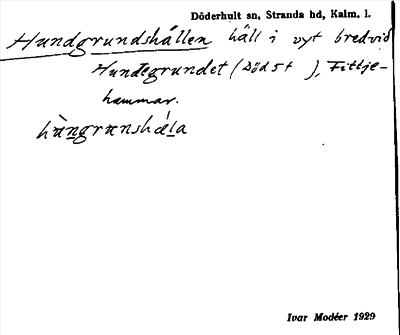 Döderhult sn, Stranda hd, Kalm. l.
Hundgrundshällen häll i vyt bredvid
Hundegrundet (Död st ), Fittje-
hammar.
hùngrunshǽla
Ivar Modéer 1929